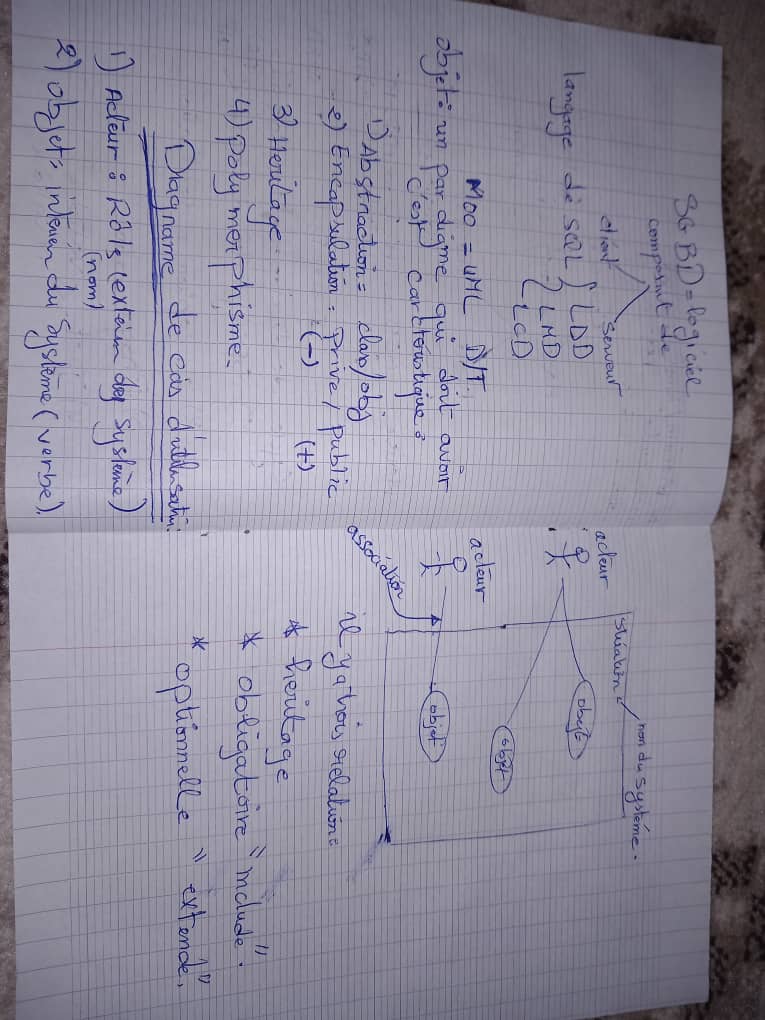 SGBD = logiciel
composant de
client serveur
langage de SQL { LDD
LMD
LCD
MOO = UML D/T
objet: un pardigme qui doit avoir
c'est caractéristique:
1) Abstraction = class/obj
2) Encapsulation: privé / public
(-) (+)
3) Heritage
4) polymorphisme.
Diagrame de cas d'utilisation:
1) Acteur: Rôle (extérin des système)
(nom)
2) objet: intérieu du système (verbe).
situation: nom du système.
acteur
objet
objet
acteur
objet
association
il ya trois relation:
* heritage
* obligatoire "include".
* optionnelle "extende".